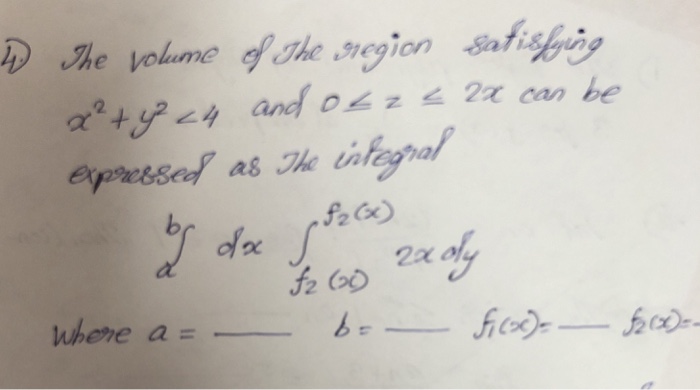 4) The volume of The region satisfying
x² + y² < 4 and 0 ≤ z ≤ 2x can be
expressed as The integral
b∫a dx ∫ f₂(x) f₂(x) 2x dy
where a = ___ b = ___ f₁(x) = ___ f₂(x) = -